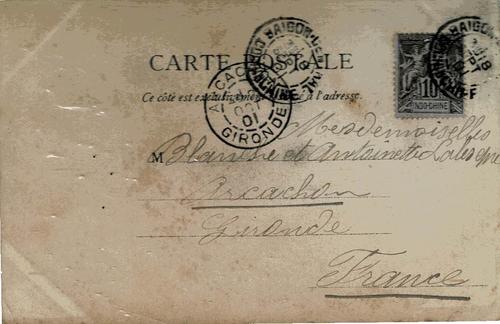 CARTE POSTALE
Ce côté est exclusivement à l'adresse.
SAIGON
COCHINCHINE
10
INDO-CHINE
ARCACHON
OCT
01
GIRONDE
Mesdemoiselles
M Blanche et Antoinette
Arcachon
Gironde
France